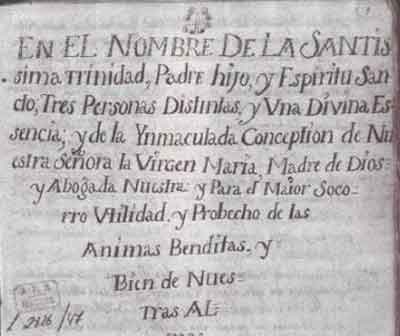 EN EL NOMBRE DE LA SANTIS
sima Trinidad, Padre hijo, y Espiritu San
cto, Tres Personas Distintas, y Vna Divina Es
sencia; y de la Ynmaculada Conception de Nu
estra Señora la Virgen Maria, Madre de Dios
y Abogada Nuestra y Para el Maior Soco
rro Vtilidad, y Probecho de las
Animas Benditas, y
Bien de Nues
tras AL